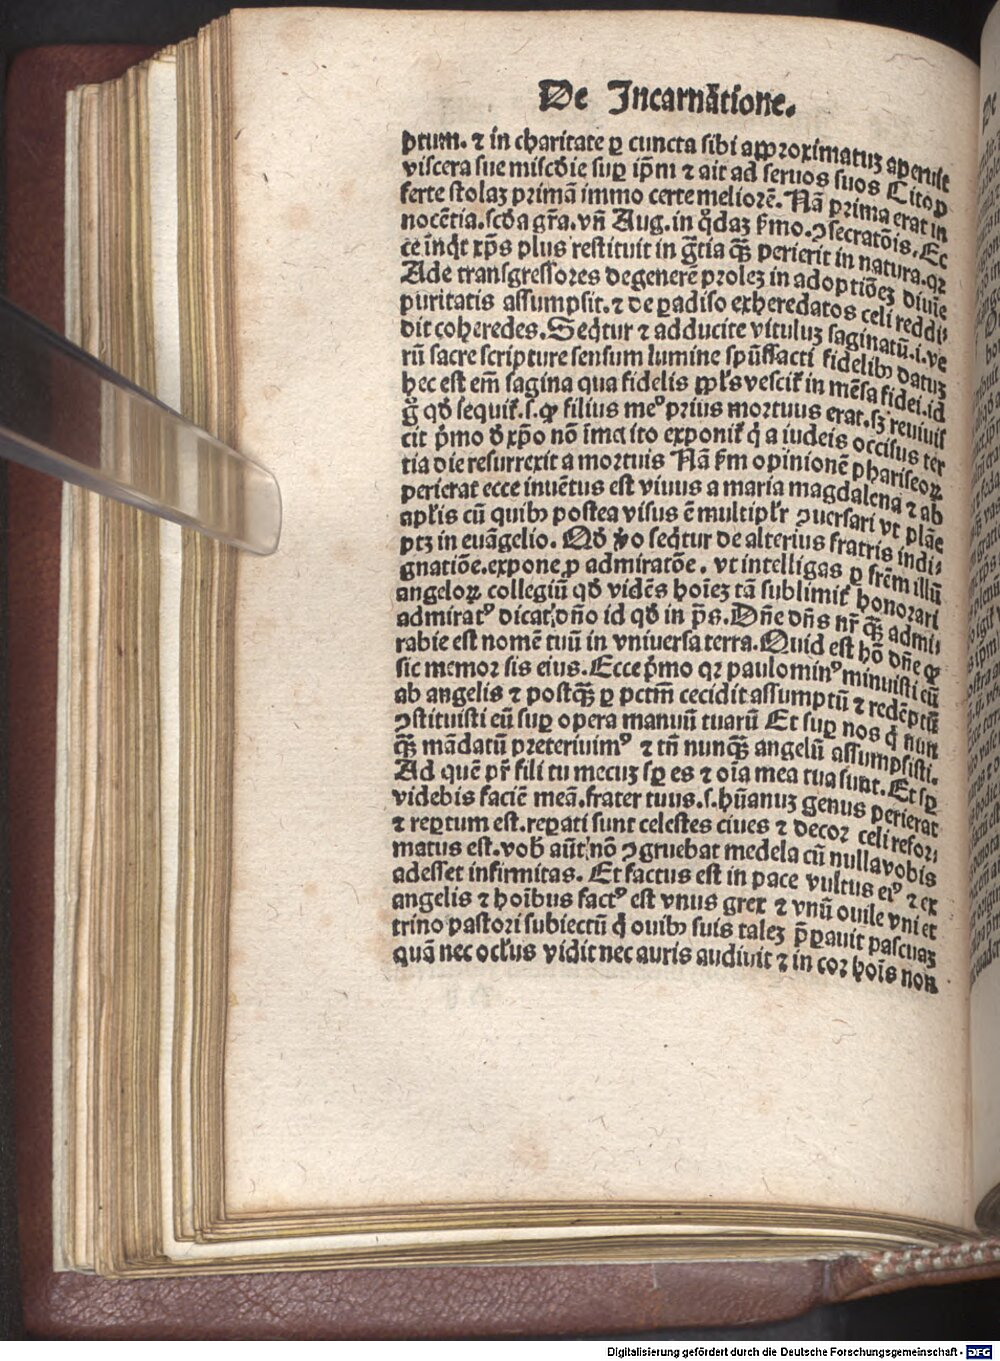 De Incarnātione.
ptum. ⁊ in charitate ꝑ cuncta sibi aꝓꝓximatuꝫ aperuit
viscera sue miscd̄ie suꝑ ip̄m ⁊ ait ad seruos suos Cito ꝓ
ferte stolaꝫ primā immo certe meliorē. Nā prima erat in
nocētia. scd̄a gr̄a. vn̄ Aug. in q̇daꝫ ẜmo. ꝯsecratōis. Ec
ce inq̇t xp̄s plus restituit in gr̄tia qꝫ̄ perierit in natura. qꝛ
Ade transgressores degenerē proleꝫ in adoptiōeꝫ diuīe
puritatis assumpsit. ⁊ de ꝑadiso exheredatos celi reddi⸗
dit coheredes. Seq̇tur ⁊ adducite vituluꝫ saginatū. i. ve
rū sacre scripture sensum lumine spūssācti fidelibꝰ datuꝫ
hec est em̄ sagina qua fidelis ꝓpl̄s vescit᷑ in mēsa fidei. id
g̊ qd̄ sequit᷑. s. ꝙ filius meꝰ prius mortuus erat. sꝫ reuiuit
cit p̄mo d̄ xp̄o nō imerito exponit᷑ q̇ a iudeis occisus ter
tia die resurrexit a mortuis Nā ẜm opinionē phariseoꝝ
perierat ecce inuētus est viuus a maria magdalena ⁊ ab
apl̄is cū quibꝰ postea visus ē multipl̄r ꝯuersari vt plāe
ptꝫ in euāgelio. Qd̄ v̊o seq̇tur de alterius fratris indi⸗
gnatiōe. expone ꝓ admiratōe. vt intelligas ꝑ fr̄em illū
angeloꝝ collegiū qd̄ vidēs hoīeꝫ tā sublimit᷑ honorari
admiratꝰ dicat dn̄o id qd̄ in p̄s. Dn̄e dn̄s nr̄ qꝫ̄ admi⸗
rabile est nomē tuū in vniuersa terra. Quid est hō dn̄e ꝙ
sic memor sis eius. Ecce p̄mo qꝛ paulominꝰ minuisti eū
ab angelis ⁊ postqꝫ̄ ꝑ pctm̄ cecidit assumptū ⁊ redēptū
ꝯstituisti eū suꝑ opera manuū tuarū Et suꝑ nos q̇ nun
qꝫ̄ mādatū preteriuimꝰ ⁊ tn̄ nunqꝫ̄ angelū assumpsisti.
Ad quē pr̄ fili tu mecuꝫ sꝑ es ⁊ oīa mea tua sunt. Et sꝑ
videbis faciē meā. frater tuus. s. hūanuꝫ genus perierat
⁊ reꝑtum est. reꝑati sunt celestes ciues ⁊ decor celi refor⸗
matus est. vob̄ aūt nō ꝯgruebat medela cū nulla vobis
adesset infirmitas. Et factus est in pace vultus eiꝰ ⁊ ex
angelis ⁊ hoībus factꝰ est vnus grex ⁊ vnū ouile vni et
trino pastori subiectū q̇ ouibꝰ suis taleꝫ p̄ꝑauit pascuaꝫ
quā nec ocl̄us vidit nec auris audiuit ⁊ in cor hoīs non
Digitalisierung gefördert durch die Deutsche Forschungsgemeinschaft - DFG